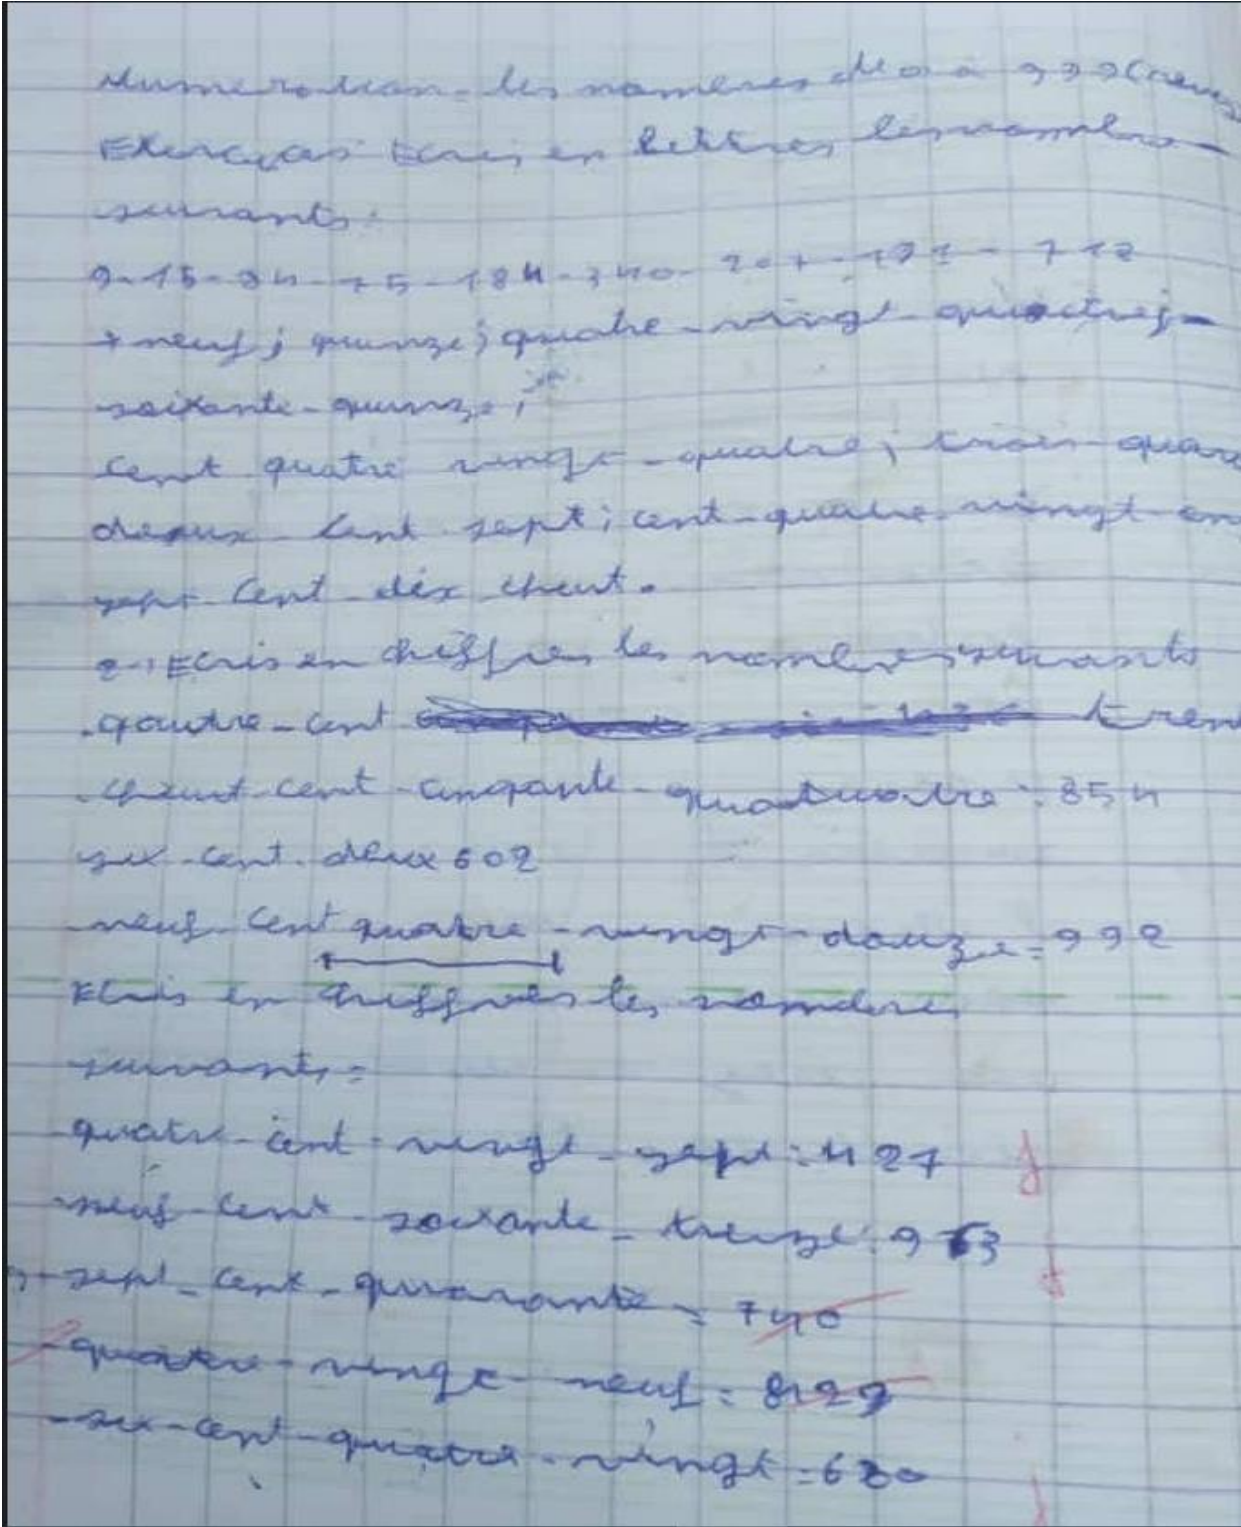 Numeration les nombres de 0 à 999
Exercices Ecris en lettres les nombres
suivants:
9-15-84-75-184-340-207-191-718
neuf; quinze; quatre-vingt quatre;
soixante-quinze;
Cent quatre vingt-quatre; trois-quara
deaux-Cent sept; cent-quatre-vingt-on
sept-Cent-dix
2-Ecris en chiffres les nombres suivants
.qautre-cent tren
cent-cinqante-quatre: 854
six-cent-deux 602
neuf-Cent quatre-vingt-douze=992
Ecris en chiffres les nombres
suivants=
quatre-cent-vingt-sept: 427
neuf-cent-soixante-treize: 973
sept-cent-quarante=740
-quatre-vingt-neuf=
-six-cent-quatre-vingt=680